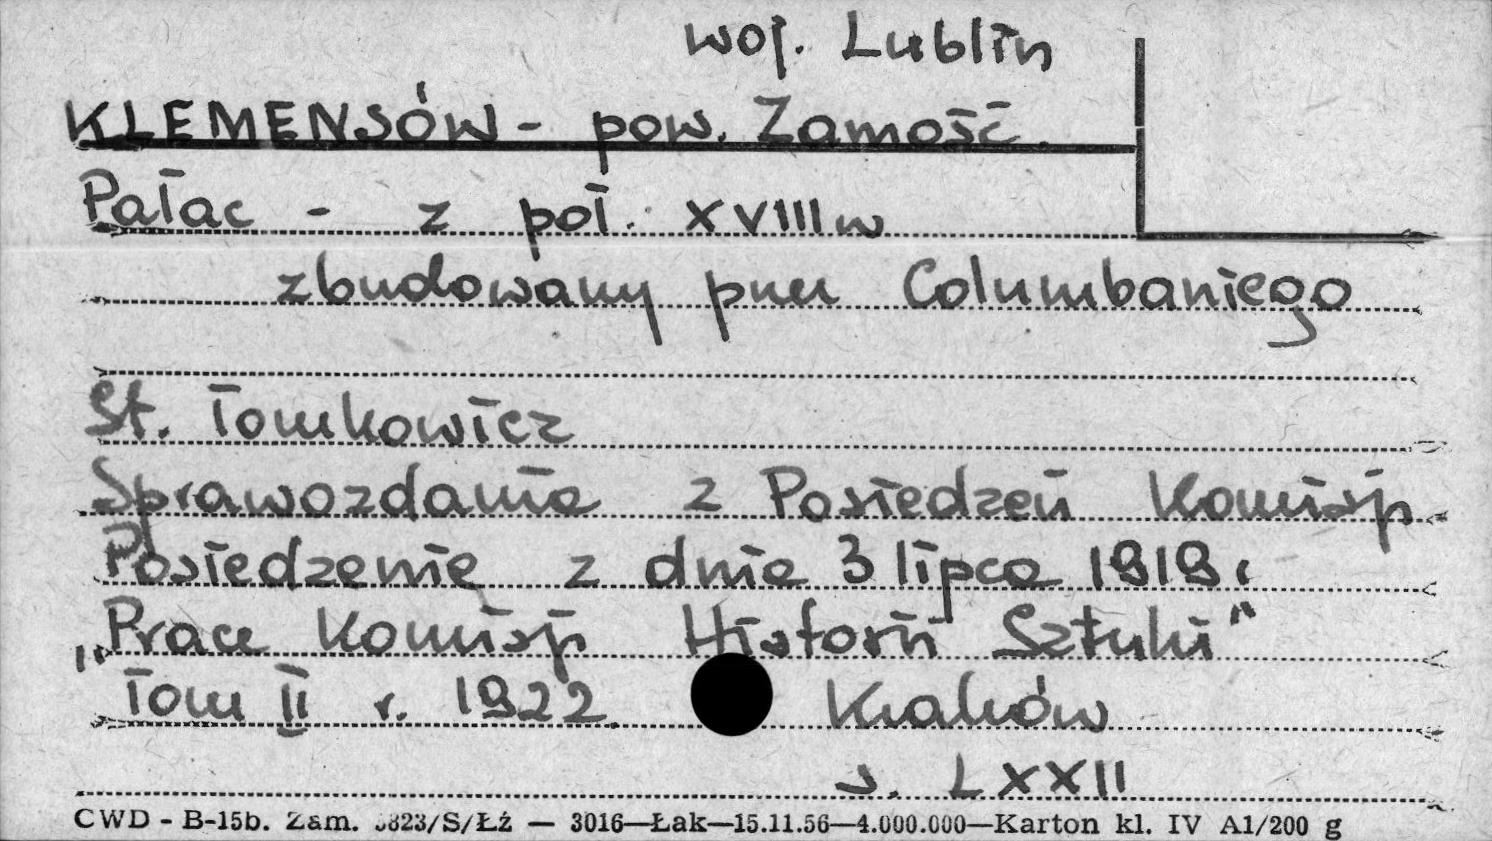 woj. Lublin
KLEMENSÓW - pow. Zamość.
Pałac - z poł. XVIII w
zbudowany przez Columbaniego
St. Tomkowicz
Sprawozdanie z Posiedzeń Komisji
Posiedzenie z dnia 3 lipca 1919 r
„Prace Komisji Historii Sztuki"
Tom II r. 1922. Kraków
s. LXXII
CWD - B-15b. Zam. 3823/S/Łż — 3016—Łak—15.11.56—4.000.000—Karton kl. IV A1/200 g